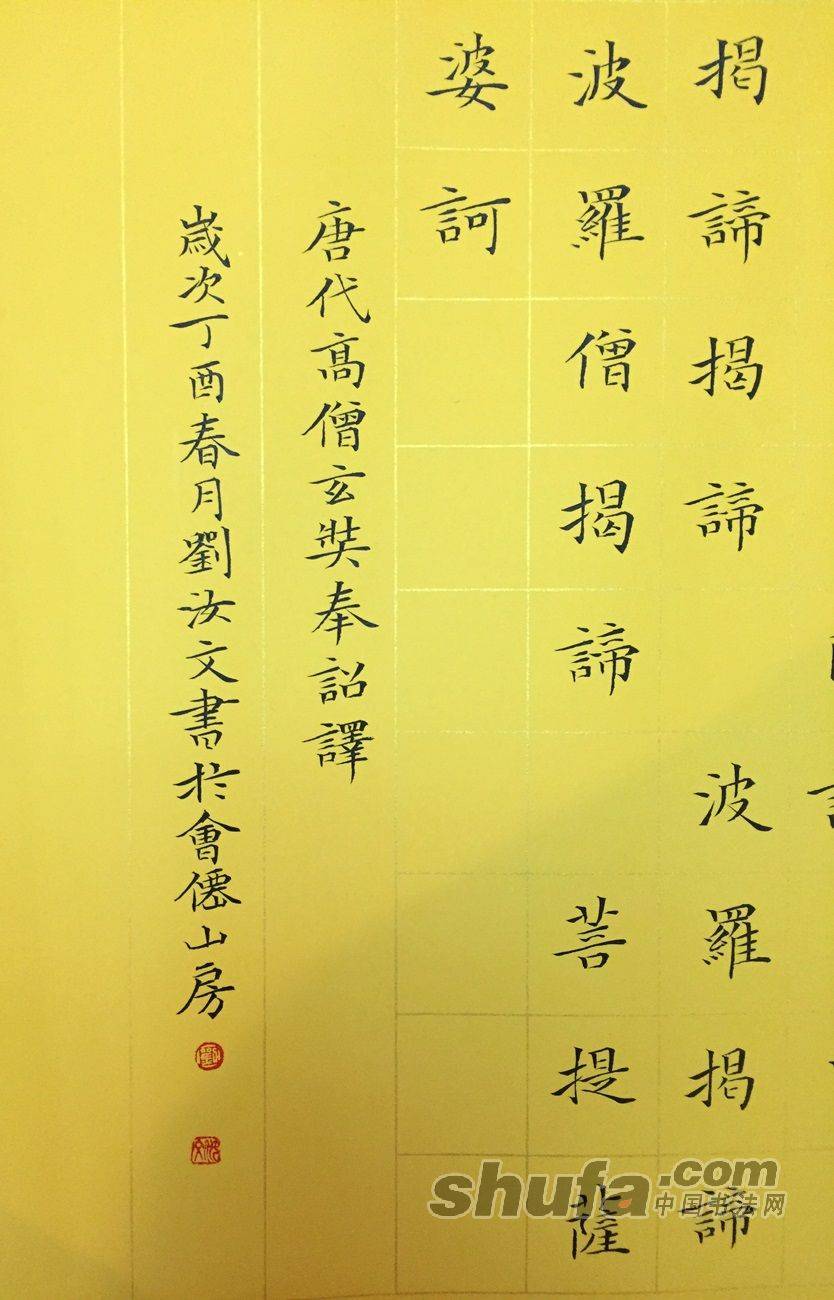 揭諦揭諦 波羅揭諦
波羅僧揭諦 菩提薩
婆訶
唐代高僧玄奘奉詔譯
歲次丁酉春月劉汝文書於會僊山房
shufa.com
中国书法网